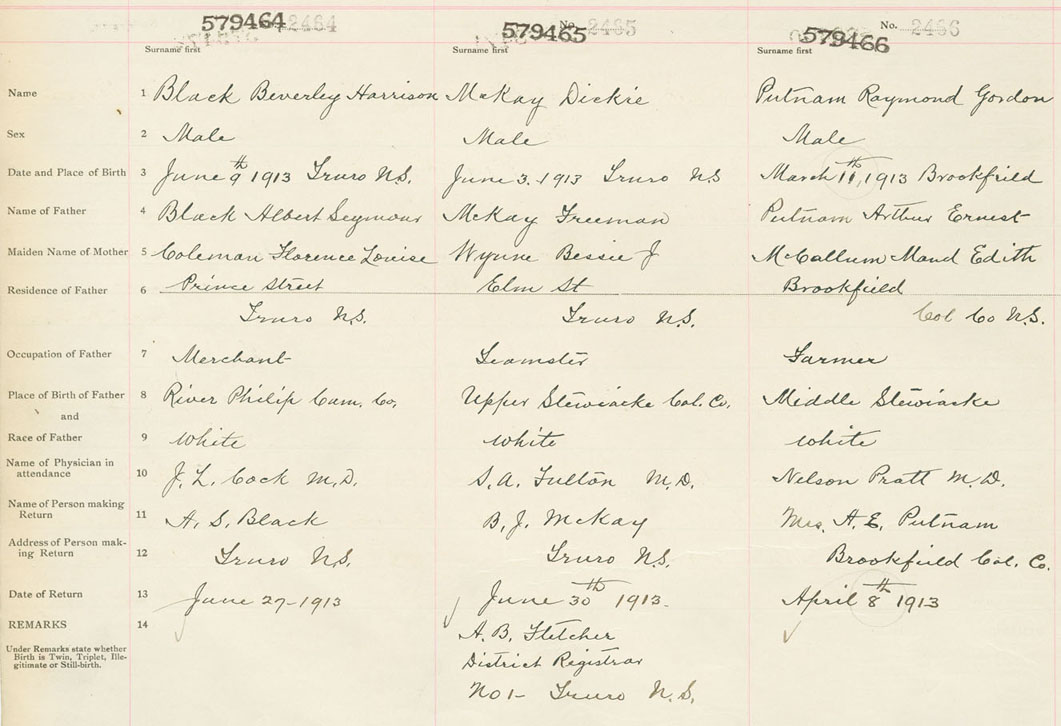 579464 2464 579465 No. 2465 579466 No. 2466
Surname first Surname first Surname first
Name 1 Black Beverley Harrison McKay Dickie Putnam Raymond Gordon
Sex 2 Male Male Male
Date and Place of Birth 3 June 9th 1913 Truro N.S. June 3. 1913 Truro N S March 11th, 1913 Brookfield
Name of Father 4 Black Albert Seymour McKay Freeman Putnam Arthur Ernest
Maiden Name of Mother 5 Coleman Florence Louise Wynne Bessie J McCallum Maud Edith
Residence of Father 6 Prince Street Elm St Brookfield
Truro N.S. Truro N.S. Col Co N.S.
Occupation of Father 7 Merchant Teamster Farmer
Place of Birth of Father 8 River Philip Cum. Co. Upper Stewiacke Col. Co. Middle Stewiacke
and
Race of Father 9 White White White
Name of Physician in attendance 10 J. L. Cock M.D. S. A. Fulton M.D. Nelson Pratt M.D.
Name of Person making Return 11 A. S. Black B. J. McKay Mrs. A. E. Putnam
Address of Person mak- ing Return 12 Truro N.S. Truro N.S. Brookfield Col. Co.
Date of Return 13 June 27-1913 June 30th 1913. April 8th 1913
REMARKS 14 A. B. Fletcher
Under Remarks state whether
Birth is Twin, Triplet, Ille-
gitimate or Still-birth.
District Registrar
No 1- Truro N.S.